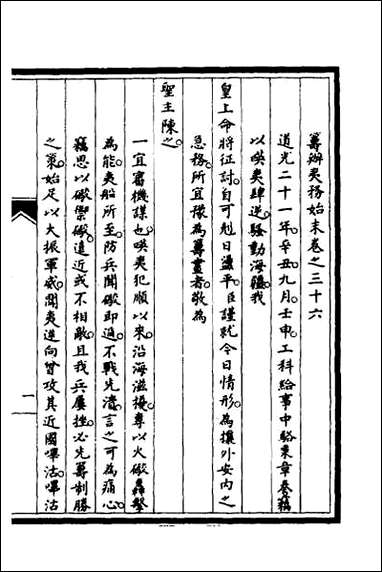 籌辦夷務始末卷之三十六
道光二十一年辛丑九月壬申工科給事中駱秉章奏竊
以㖸夷肆逆騷動海疆我
皇上命將征討自可剋日盪平臣謹就今日情形為攘外安內之
急務所宜豫為籌畫者敬為
聖主陳之
一宜審機謀也㖸夷犯順以來沿海滋擾專以火礮轟擊
為能夷船所至防兵聞礮即過不戰先潰言之可為痛心
竊思以礮禦礮遠近或不相敵且我兵屢挫必先籌制勝
之策始足以大振軍威聞夷逆向曾攻其近國嗶沽嗶沽
一